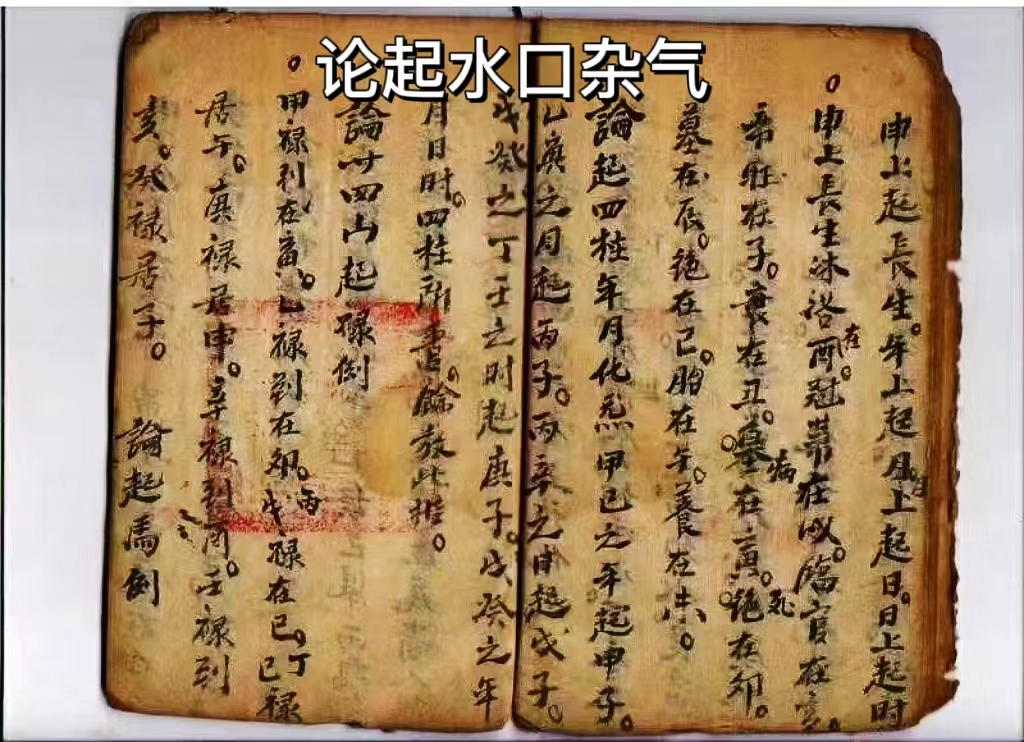 论起水口杂气
申上起長生。年上起月上起日。日上起時
申上長生沐浴在酉。冠帶在戌。臨官在亥。
帝旺在子。衰在丑。病在寅。死在卯。
墓在辰。絶在巳。胎在午。養在未。
論起四柱年月化炁甲己之年起甲子。
乙庚之月起丙子。丙辛之日起戊子。
戊癸之丁壬之时起庚子。戊癸之年
月日时。四柱所書。餘放此推。
論廿四山起祿倒
甲禄到在寅。乙禄到在卯。丙戊禄在巳。丁己禄
居午。庚禄居申。辛禄到酉。壬禄到
亥。癸禄居子。 論起馬倒